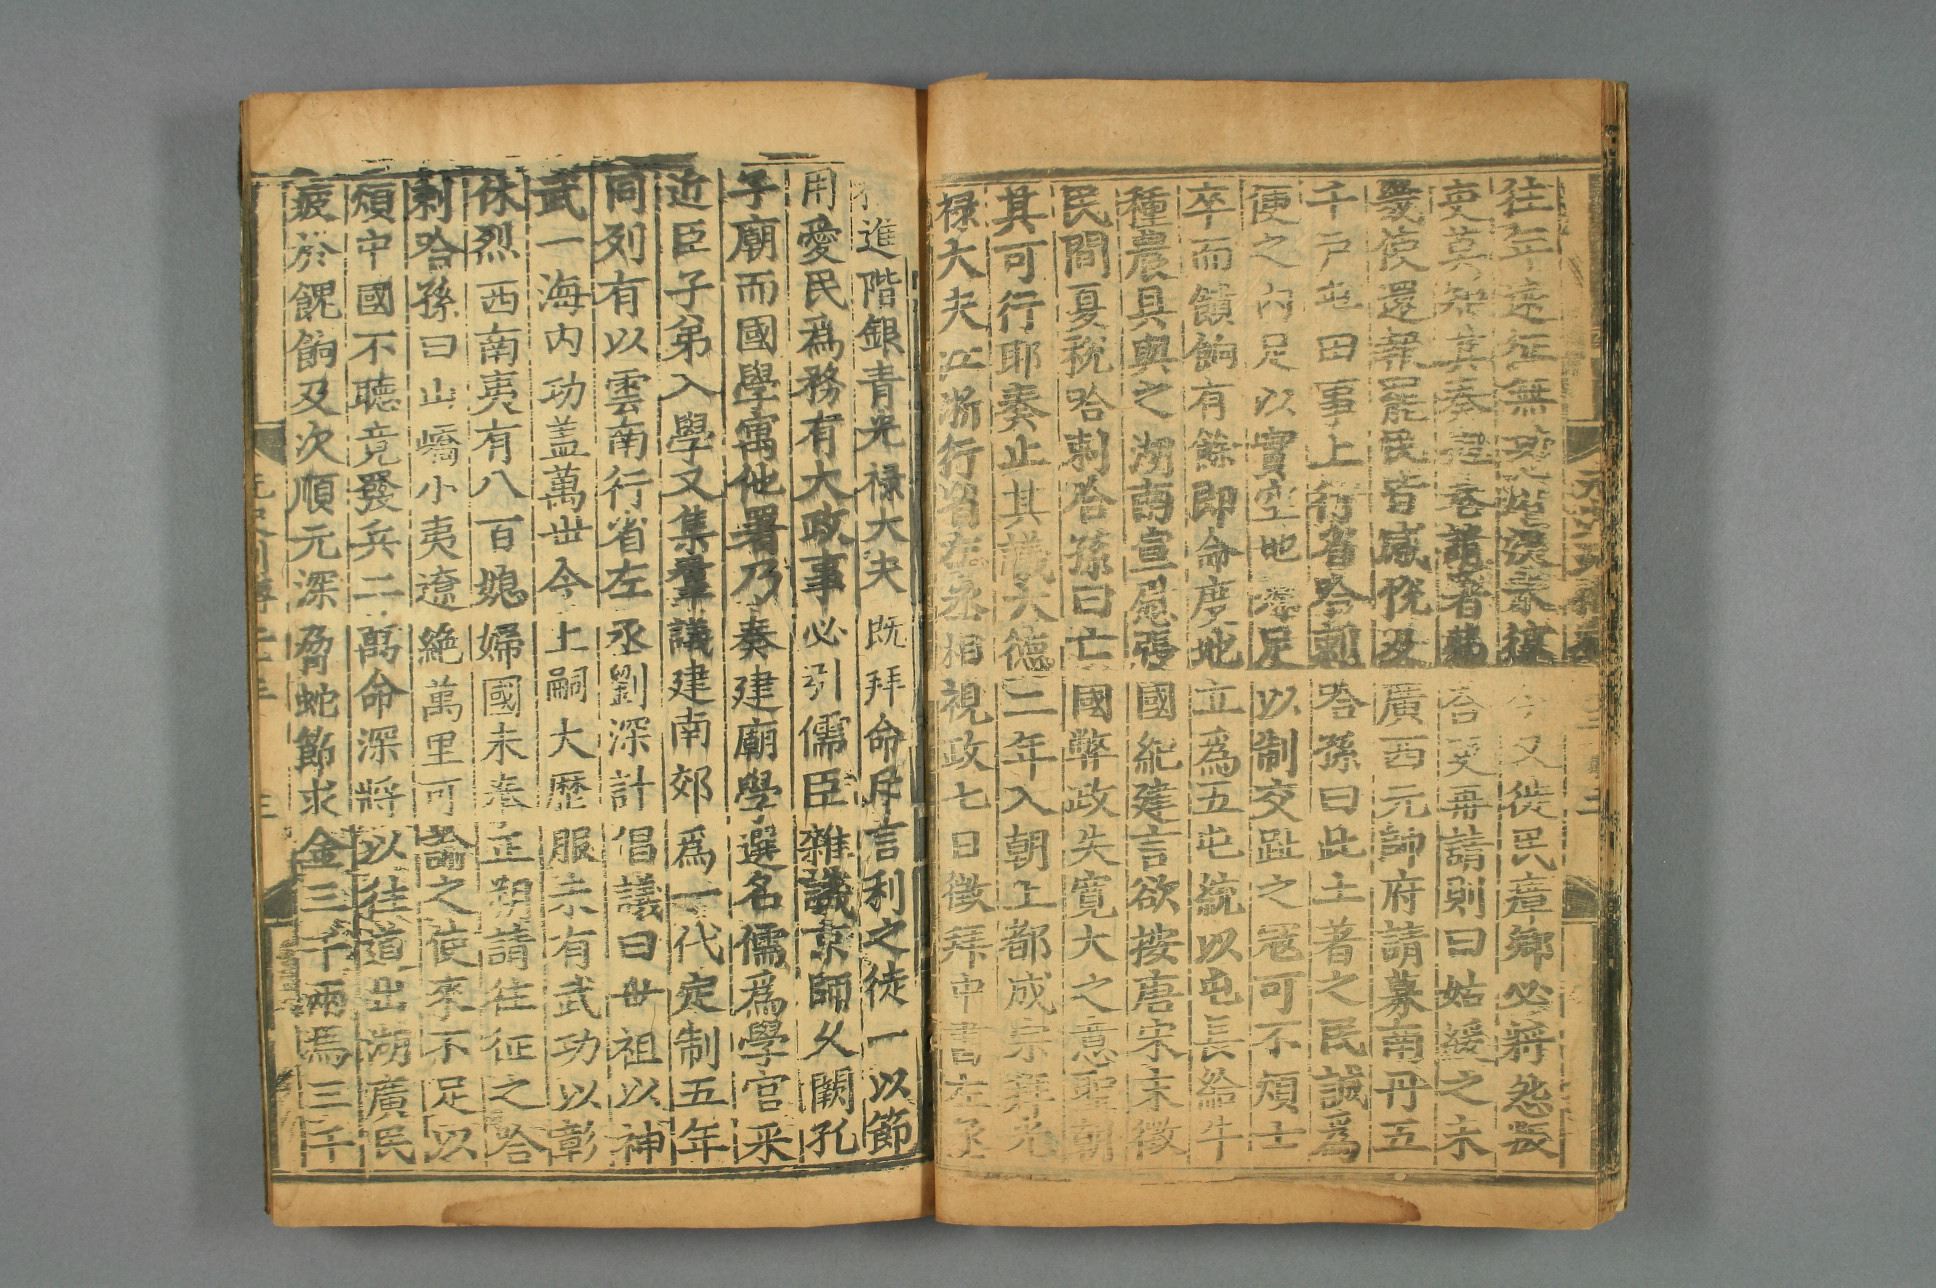 往年遠征無功瘡痍未復今又徙民瘴鄉必將怨叛
吏莫知其奏抱卷請署弗答吏再請則曰姑緩之未
幾使還報罷民皆感悅及廣西元帥府請募南丹五
千戶屯田事上行省哈剌哈孫曰此土著之民誠爲
便之內足以實空地外足以制交趾之寇可不煩士
卒而饋餉有餘即命度地立爲五屯統以屯長給牛
種農具與之湖南宣慰張國紀建言欲按唐宋末徵
民間夏稅哈剌哈孫曰亡國弊政失寬大之意聖朝
其可行耶奏止其議大德二年入朝上都成宗拜光
祿大夫江浙行省左丞相視政七日徵拜中書左丞
進階銀青光祿大夫既拜命斥言利之徒一以節
用愛民爲務有大政事必引儒臣雜議京師久闕孔
子廟而國學寓他署乃奏建廟學選名儒爲學官采
近臣子弟入學又集羣議建南郊爲一代定制五年
同列有以雲南行省左丞劉深計倡議曰世祖以神
武一海內功蓋萬世今上嗣大歷服未有武功以彰
休烈西南夷有八百媳婦國未奉正朔請往征之哈
剌哈孫曰山嶠小夷遼絕萬里可諭之使來不足以
煩中國不聽竟發兵二萬命深將以往道出湖廣民
疲於餽餉及次順元深脅蛇節求金三千兩馬三千